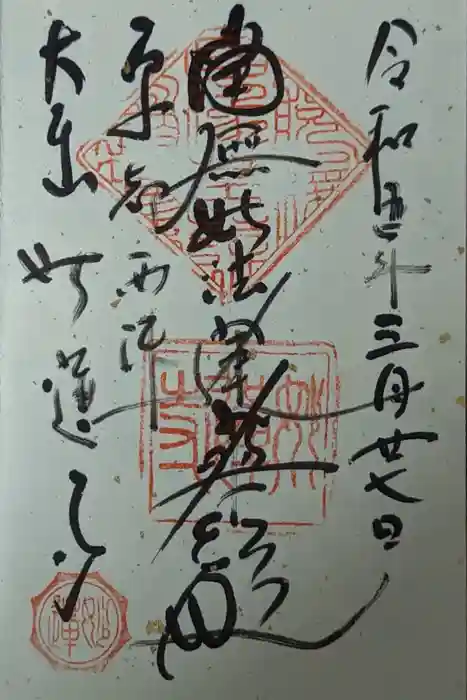 令和五年三月廿七日
南無妙法蓮華経
京都西陣
大本山妙蓮寺
妙蓮寺